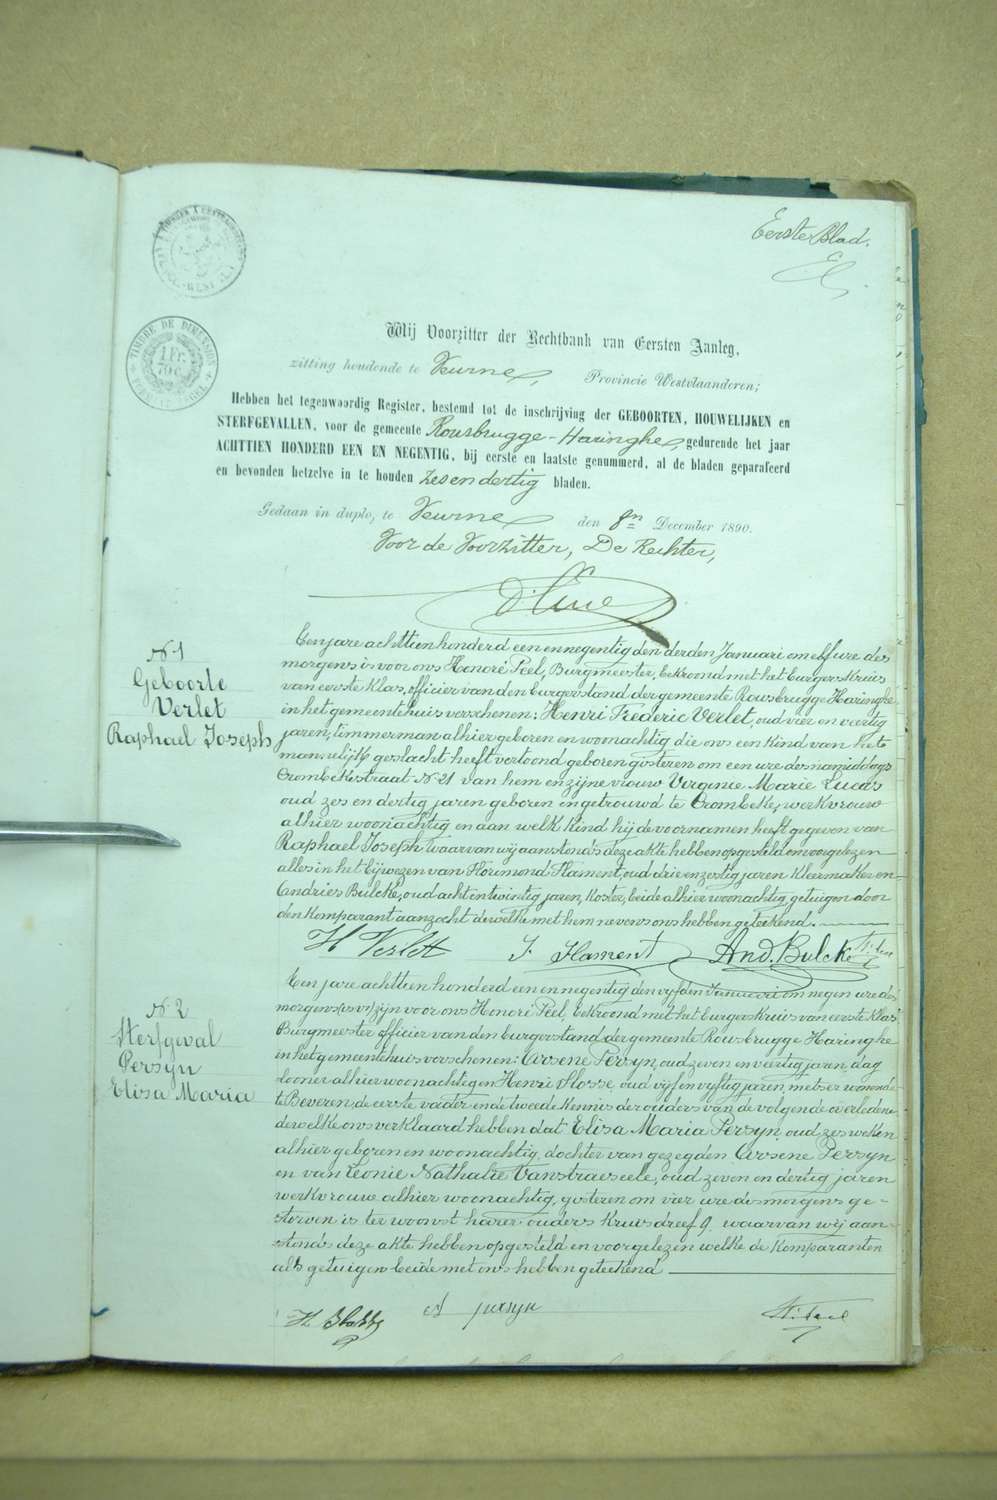 Eerste Blad.
TIMBRE DE DIMENSION
1 Fr.
70 c.
Wij Voorzitter der Rechtbank van Eersten Aanleg,
zitting houdende te Veurne, Provincie Westvlaanderen;
Hebben het tegenwoordig Register, bestemd tot de inschrijving der GEBOORTEN, HOUWELIJKEN en
STERFGEVALLEN, voor de gemeente Rousbrugge-Haringhe, gedurende het jaar
ACHTTIEN HONDERD EEN EN NEGENTIG, bij eerste en laatste genummerd, al de bladen geparafeerd
en bevonden hetzelve in te houden zesendertig bladen.
Gedaan in duplo, te Veurne den 8en December 1890.
Voor de Voorzitter, De Rechter,
N. 1
Geboorte
Verlet
Raphael Joseph
Een jare achttien honderd een en negentig den derden Januari om elf ure des
morgens is voor ons Honoré Peel, Burgmeester, bekroond met het burgers Kruis
van eerste Klas, officier van den burgerstand der gemeente Rousbrugge Haringhe
in het gemeentehuis verschenen: Henri Frederic Verlet, oud vier en veertig
jaren, timmerman alhier geboren en woonachtig die ons een Kind van het
mannelijk geslacht heeft vertoond geboren gisteren om een ure des namiddags
Crombekestraat N. 21 van hem en zijne vrouw Virginie Marie Lucas
oud zes en dertig jaren geboren in getrouwd te Crombeke, werkvrouw
alhier woonachtig en aan welk Kind hij de voornamen heeft gegeven van
Raphael Joseph waarvan wij aanstonds deze akte hebben opgesteld en voorgelezen
alles in het bijwezen van Florimond Flament, oud drie en zestig jaren Kleermaker en
Andries Bulcke, oud acht en twintig jaren, Koster, beide alhier woonachtig getuigen door
den Komparant aanzocht dewelke met hem nevens ons hebben geteekend.
H Verlet F. Flament And. Bulcke H. Peel
N. 2
Sterfgeval
Persyn
Elisa Maria
Een jare achttien honderd een en negentig den vyfden Januari om negen ure des
morgens (is vs) zijn voor ons Honoré Peel, bekroond met het burgers Kruis van eerste Klas
Burgmeester officier van den burgerstand der gemeente Rousbrugge Haringhe
in het gemeentehuis verschenen: Arsene Persyn, oud zeven en veertig jaren, dag
looner alhier woonachtig en Henri Flosse, oud vijf en vyftig jaren, metser wonende
te Beveren, de eerste vader en de tweede Kennis der ouders van de volgende overledene
dewelke ons verklaard hebben dat Elisa Maria Persyn, oud zes weken
alhier geboren en woonachtig, dochter van gezegden Arsene Persyn
en van Leonie Nathalie Vanstraeseele, oud zeven en dertig jaren
werkvrouw alhier woonachtig, gisteren om vier ure des morgens ge-
storven is ter woonst harer ouders Kruisdreef 9. waarvan wij aan-
stonds deze akte hebben opgesteld en voorgelezen welke de Komparanten
als getuigen beide met ons hebben geteekend
A persyn H. Peel